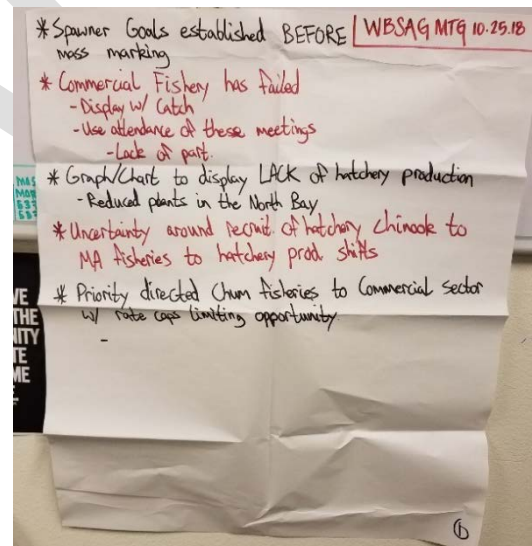 * Spawner Goals established BEFORE
WBSAG MTG 10.25.18
mass marking
* Commercial Fishery has failed
- Display w/ Catch
- Use attendance of these meetings
- Lack of part.
* Graph/Chart to display LACK of hatchery production
- Reduced plants in the North Bay
* Uncertainty around recruit. of hatchery Chinook to
MA fisheries to hatchery prod. shifts
* Priority directed Chum fisheries to Commercial sector
w/ rate caps limiting opportunity.
-
VE
THE
ITY
TE
ME
1